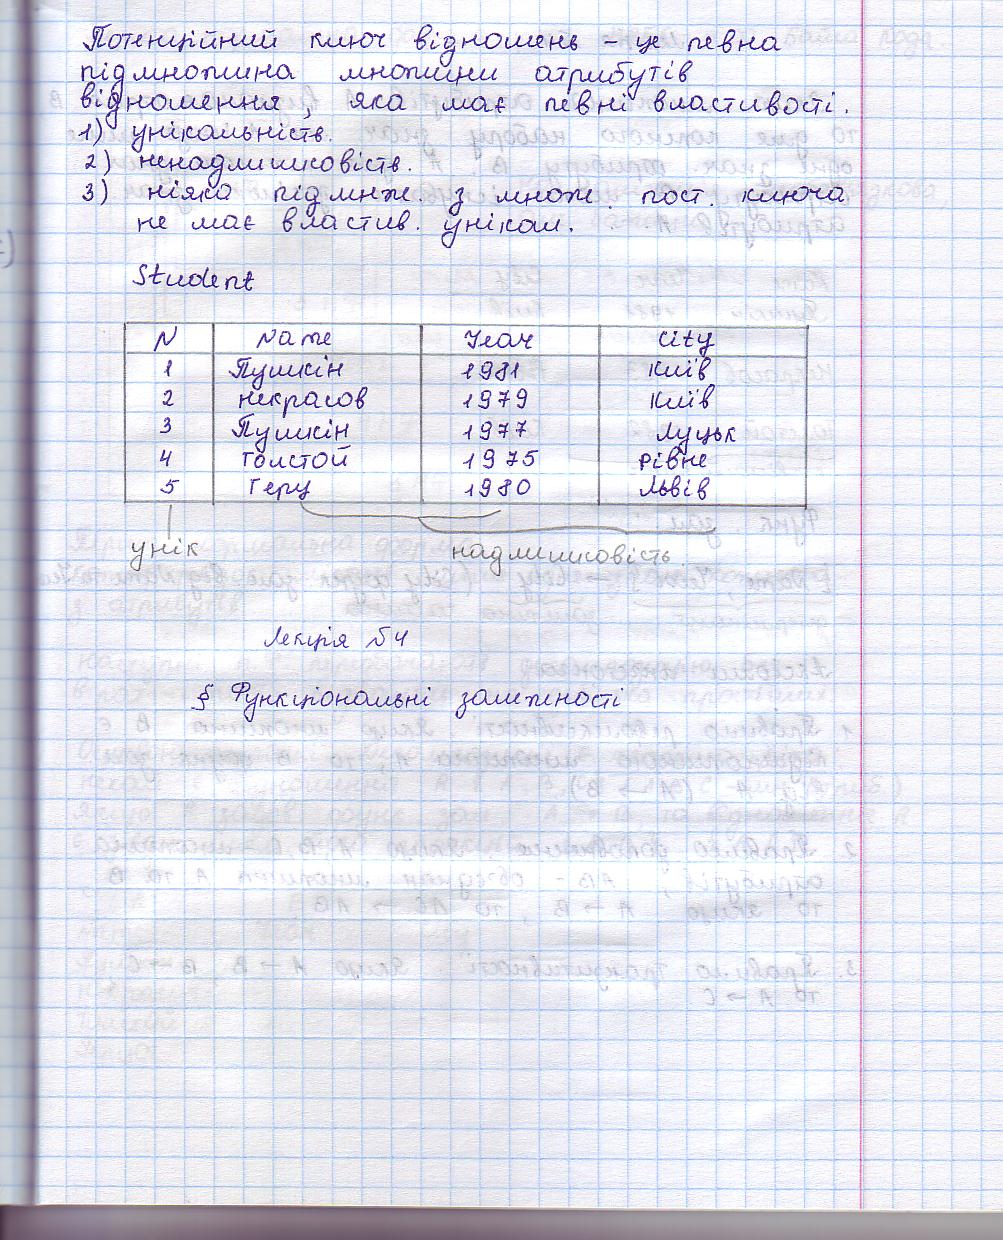 Потенційний ключ відношень - це певна
підмножина множини атрибутів
відношення, яка має певні властивості.
1) унікальність.
2) ненадлишковість.
3) ніяка підмнж. з множ пот. ключа
не має властив. унікал.
Student
N Name Year City
1 Пушкін 1981 Київ
2 Некрасов 1979 Київ
3 Пушкін 1977 Луцьк
4 Толстой 1975 Рівне
5 1980 Львів
унік надлишковість
Лекція №4
§ Функціональні залежності